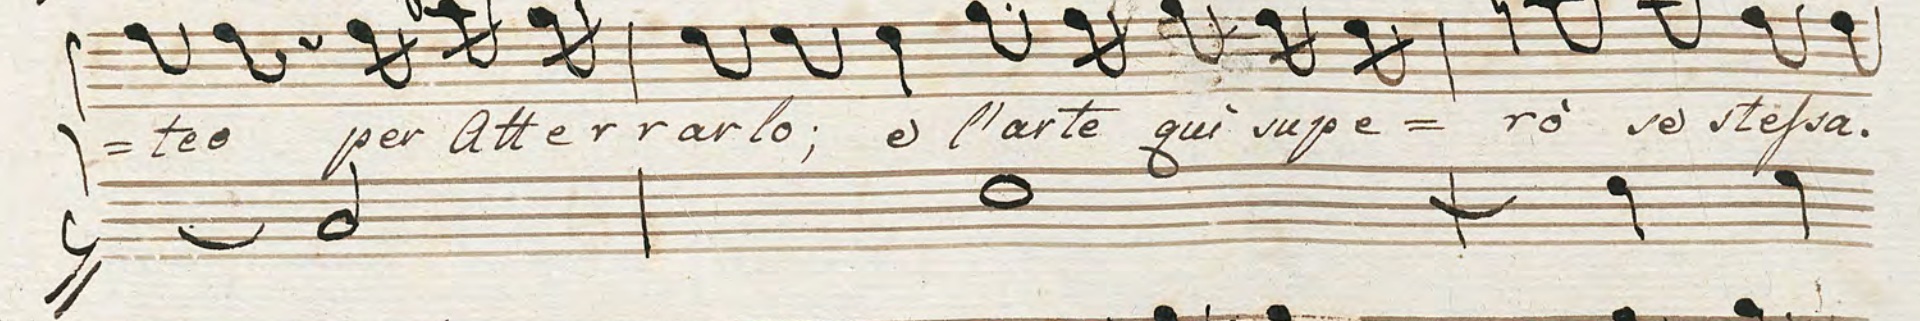 =teo per Atterrarlo; e l'arte qui supe= rò se steſsa.